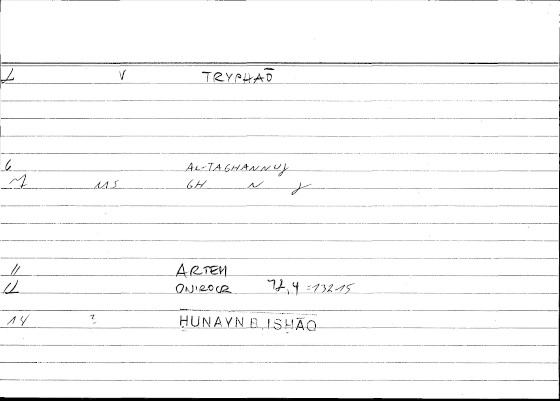 1 V TRYPHAŌ
6 AL-TAGHANNUǦ
MS GH N
11 ARTEM
12 ONIROCR 72,4 = 132 15
14 ? ḤUNAYN B. ISḤĀQ